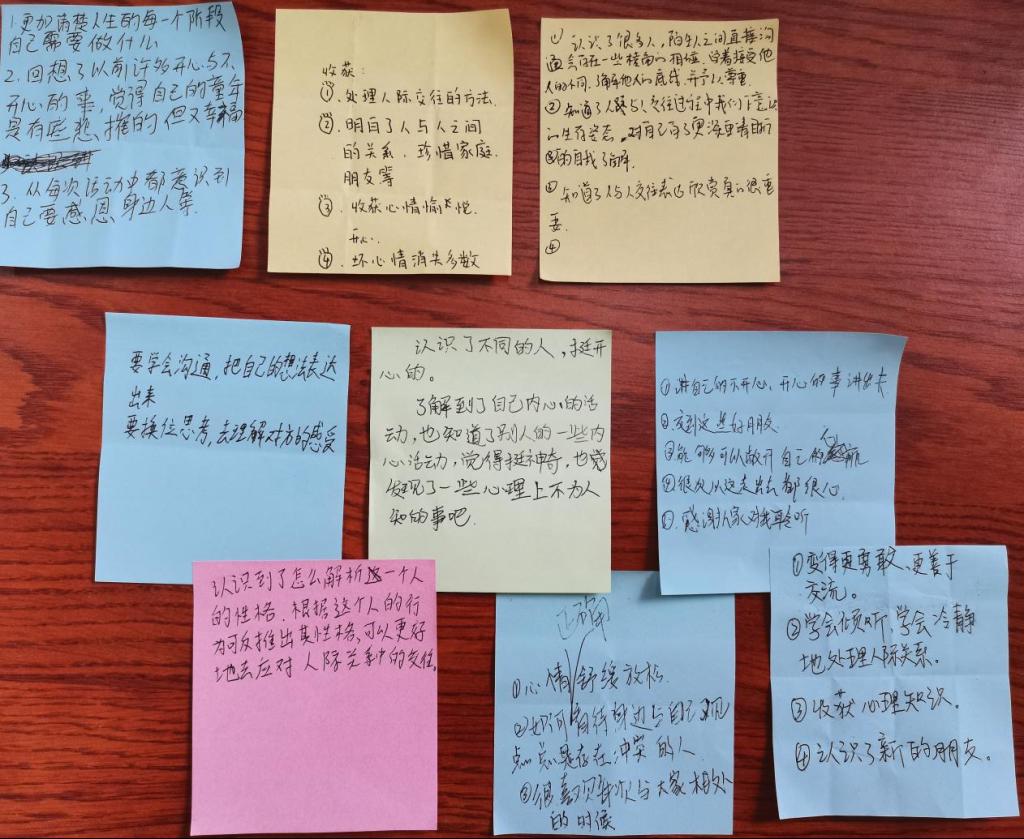 1.更加清楚人生的每一个阶段
自己需要做什么
2.回想了以前许多开心与不
开心的事,觉得自己的童年
是有些悲摧的但又幸福
3.从每次活动中都意识到
自己要感恩身边人等.
收获:
①.处理人际交往的方法.
②.明白了人与人之间
的关系.珍惜家庭.
朋友等
③.收获心情愉悦.
开心.
④.坏心情消失多数
① 认识了很多人,陌生人之间直接沟
通会存在一些 学着接受他
人的不同,了解他人的底线,并予以尊重.
②知道了人与人交往过程中我们下意识
的生存姿态.对自己有了更深更清晰
③的自我了解.
④知道了人与人交往表达欣赏真的很重
要.
④
要学会沟通,把自己的想法表达
出来
要换位思考,去理解对方的感受
认识了不同的人,挺开
心的。
了解到了自己内心的活
动,也知道了别人的一些内
心活动,觉得挺神奇,也
发现了一些心理上不为人
知的事吧.
①讲自己的不开心、开心的事讲出去
②交到这些好朋友.
③能够可以敞开自己的
④很 从这走出去都很心.
①.感谢大家对我聆听
认识到了怎么解析一个人
的性格.根据这个人的行
为可反推出其性格,可以更好
地去应对人际关系中的交往.
正确
①心情舒缓放松.
②如何看待身边与自己观
点总是存在冲突的人
③很喜欢每次与大家相处
的时候
①变得更勇敢、更善于
交流。
②学会倾听,学会冷静
地处理人际关系.
③收获心理知识。
④认识了新的朋友。